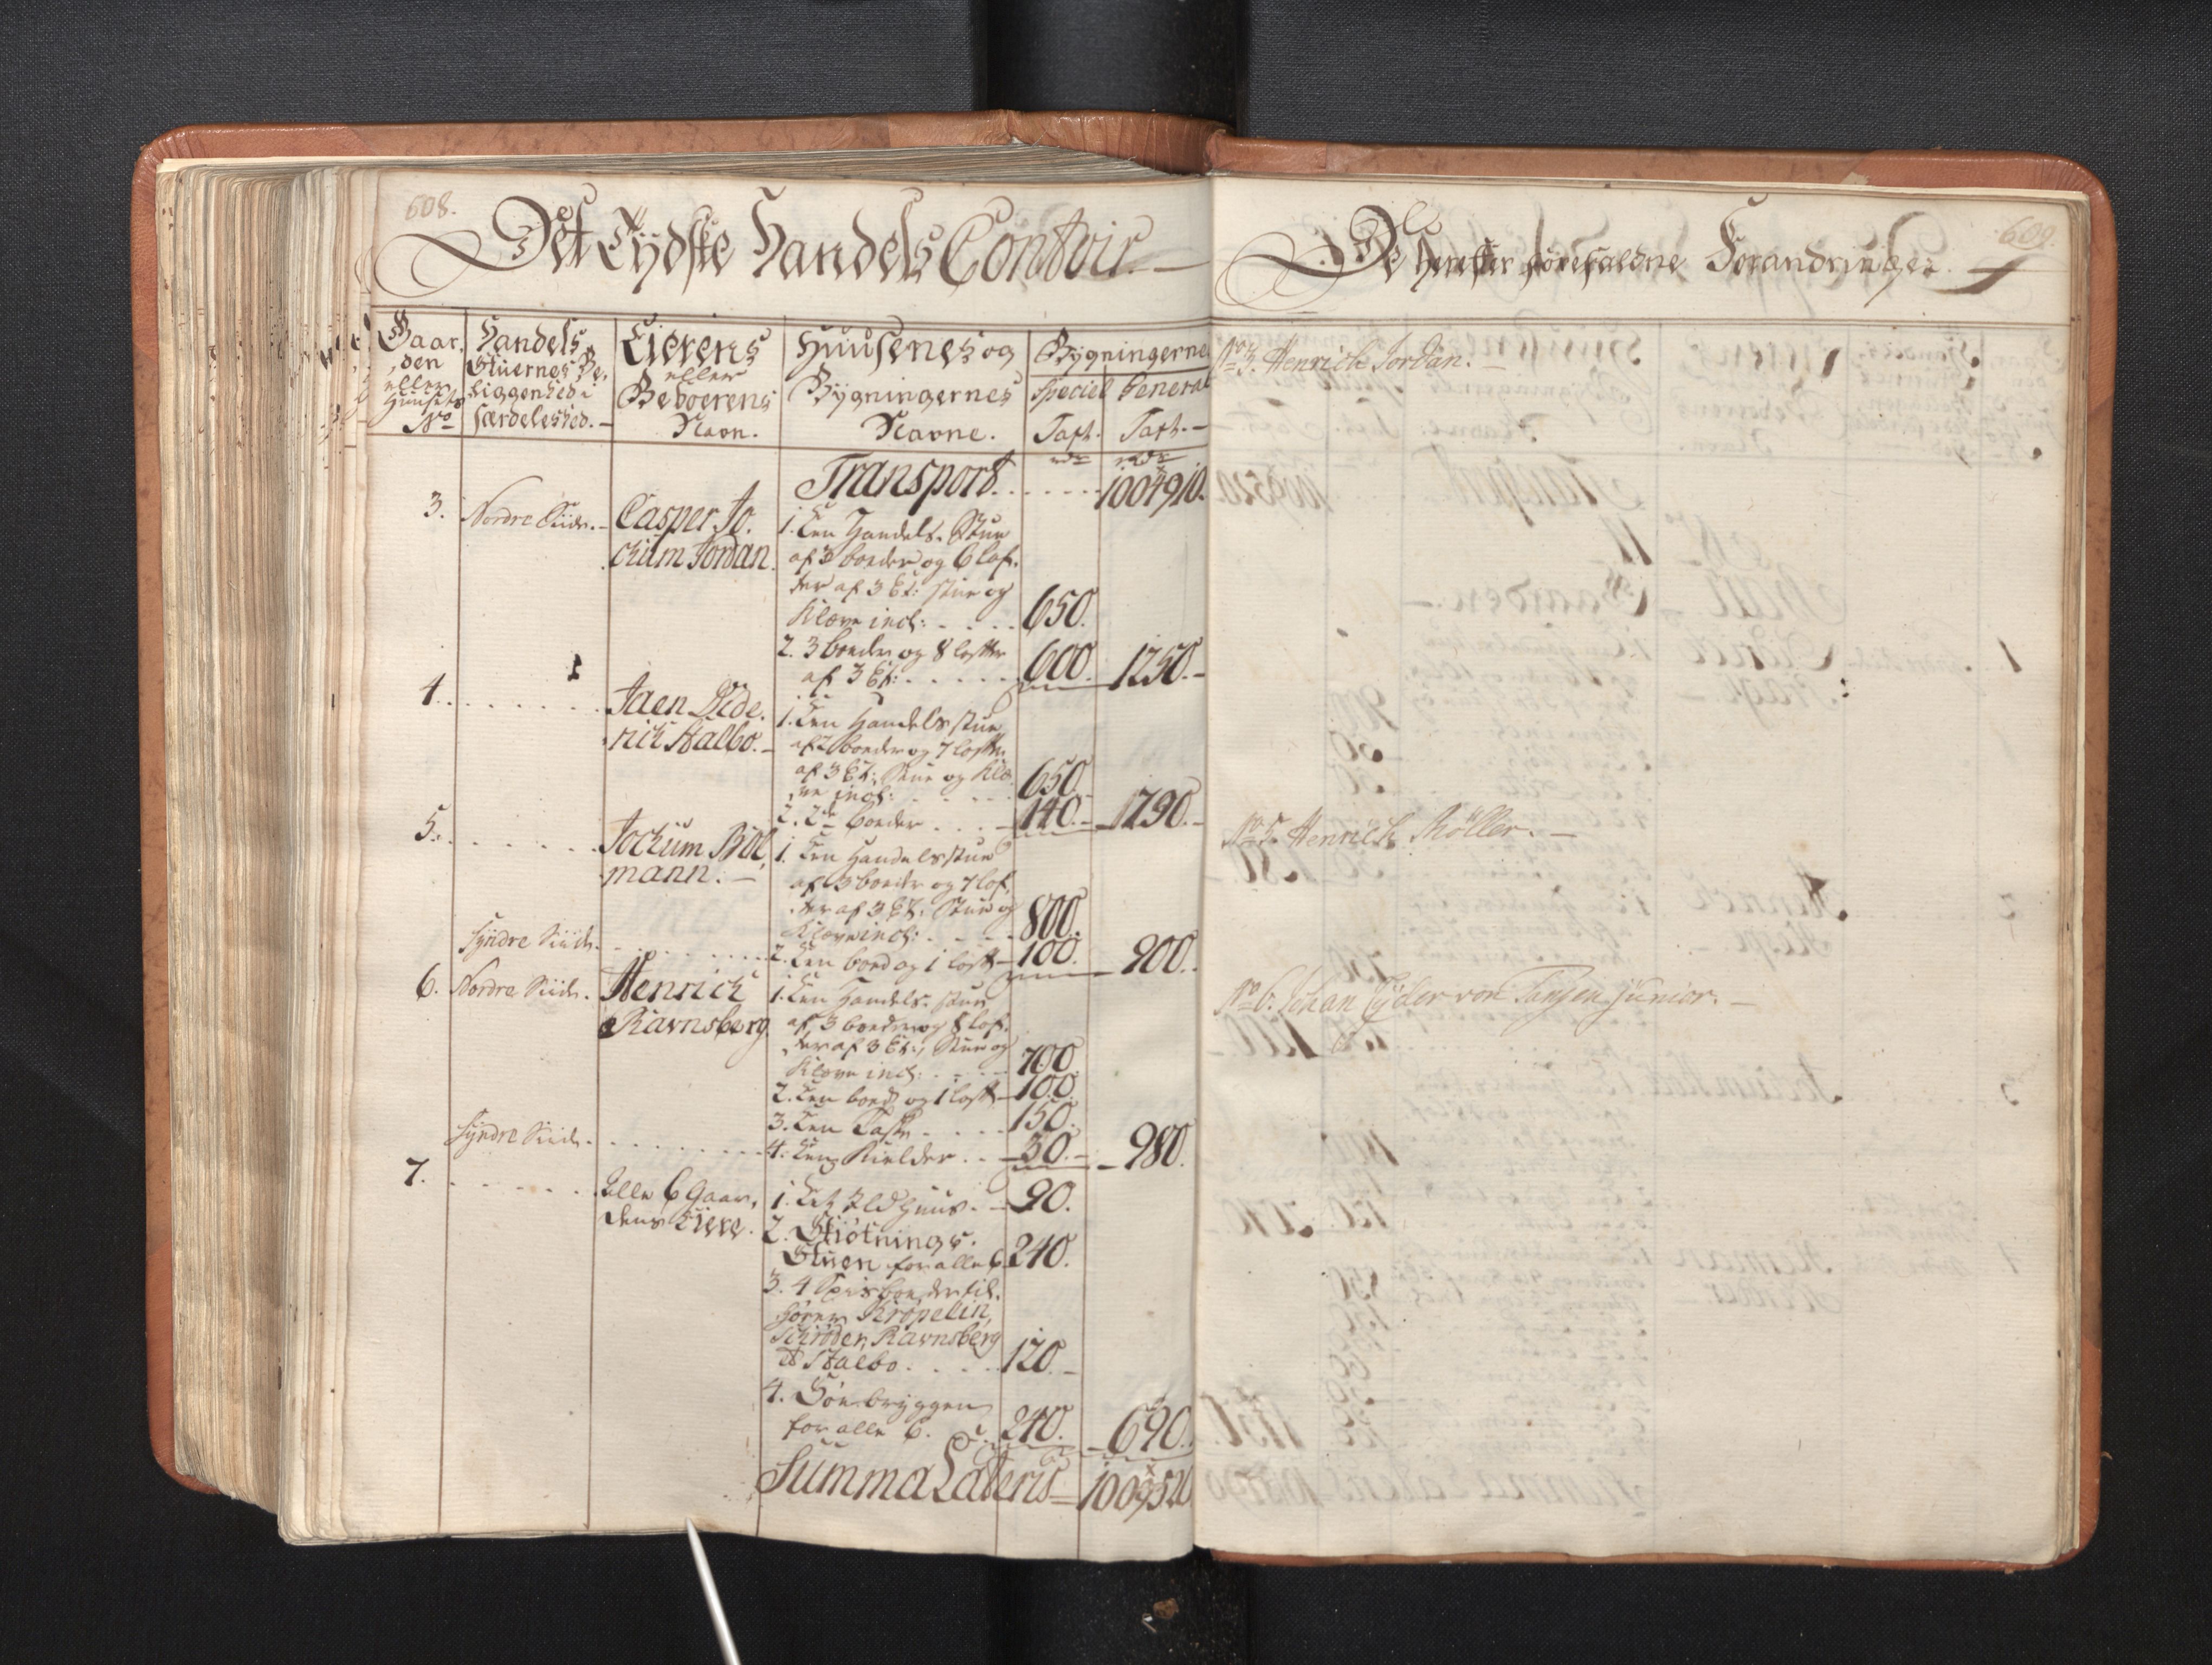 608.
Det Tydske Handels Contoir.
Gaar,
den
eller
Huusets
No
Handels
Stuernes Be,
liggenhed i
særdeleshed.
Eierens
eller
Beboerens
Navn.
Huusenes og
Bygningernes
Navne.
Bygningerne
Speciel General
Taxt. Taxt.
rdr rdr
Transport . . . . . 1004910.
3. Nordre Siide. Casper Jo,
chum Jordan.
1. Een Handels Stue
af 3 boeder og 6 lof,
ter af 3 Et: Stue og
Kleve incl: . . . 650.
2. 3 boeder og 8 lofter
af 3 Et: . . . . . 600. 1250.
4. . . . . . . Jaen Dide,
rich Stalbo.
1. Een Handels stue
af 2 boeder og 7 lofter
af 3 Et: Stue og Kle,
ve incl: . . . 650.
2. 2de boeder . . . 140. 1290.
5. . . . . . . Jochum Böl,
mann.
1. Een Handels stue
af 3 boeder og 7 lof,
ter af 3 Et: Stue og
Kleve incl: . . . 800.
Syndre Siide. . . . . . 2. Een boed og 1 loft 100. 900.
6. Nordre Siide. Henrich
Ravnsberg
1. Een Handels stue
af 3 boeder og 8 lof,
ter af 3 Et: Stue og
Kleve incl: . . . 700.
2. Een boed og 1 loft 100.
3. Een . . . 150.
Syndre Siide. . . . . . 4. Een Kielder . . 30. 980.
7. . . . . . Alle 6 Gaar,
dens Eiere.
1. Et Ildhuus. 90.
2. Skiøtnings
Stuen for alle 6 240.
3. 4 Spisboeder til,
hører Kröpelin,
Schröder, Ravnsberg
& Stalbo . . . . 120.
4. Søe bryggen
for alle 6. . . 240. 690.
Summa Lateris 1009520
609.
De herefter forefaldne Forandringer.
No 3. Henrich Jordan.
No 5. Henrich Möller.
No 6. Johan Tyder von Tangen junior.